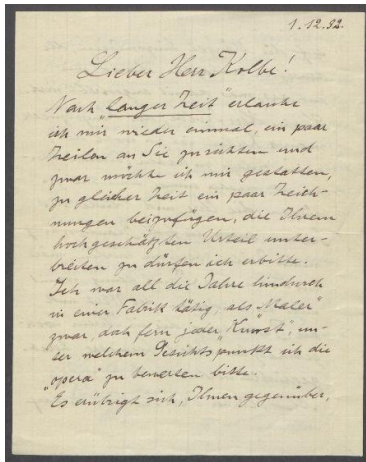 1.12.32.
Lieber Herr Kolbe!
Nach "langer Zeit" erlaube
ich mir wieder einmal, ein paar
Zeilen an Sie zu richten und
zwar möchte ich mir gestatten,
zu gleicher Zeit ein paar Zeich-
nungen beizufügen, die Ihrem
hochgeschätzten Urteil unter-
breiten zu dürfen ich erbitte.
Ich war all die Jahre hindurch
in einer Fabrik tätig, als "Maler"
zwar, doch fern jeder "Kunst", un-
ter welchem Gesichtspunkt ich die
"opera" zu bewerten bitte.
Es erübrigt sich, Ihnen gegenüber,